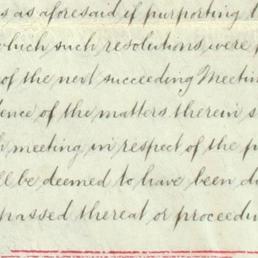 as aforesaid if purporting
which such resolutions were
of the next succeeding Meetin
ence of the matters therein s
meeting in respect of the p
ll be deemed to have been d
passed thereat or proceedin